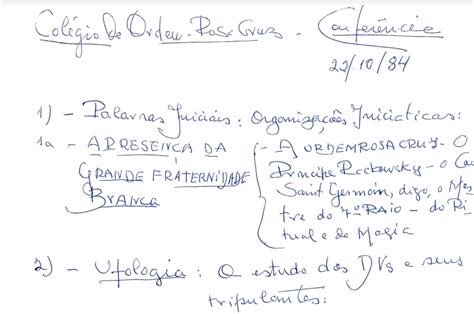 Colégio de Ordem Rosa Cruz - Conferência
22/10/84
1) - Palavras Iniciais: Organizações Iniciáticas:
1a - APRESENÇA DA
GRANDE FRATERNIDADE
BRANCA
- A ORDEM ROSA CRUZ - O
Príncipe Rackowsky - O Con
Saint Germain, digo, o Mes
tre do 7º RAIO - do Ri
tual e da Magia
2) - Ufologia: O estudo dos DVs e seus
tripulantes: